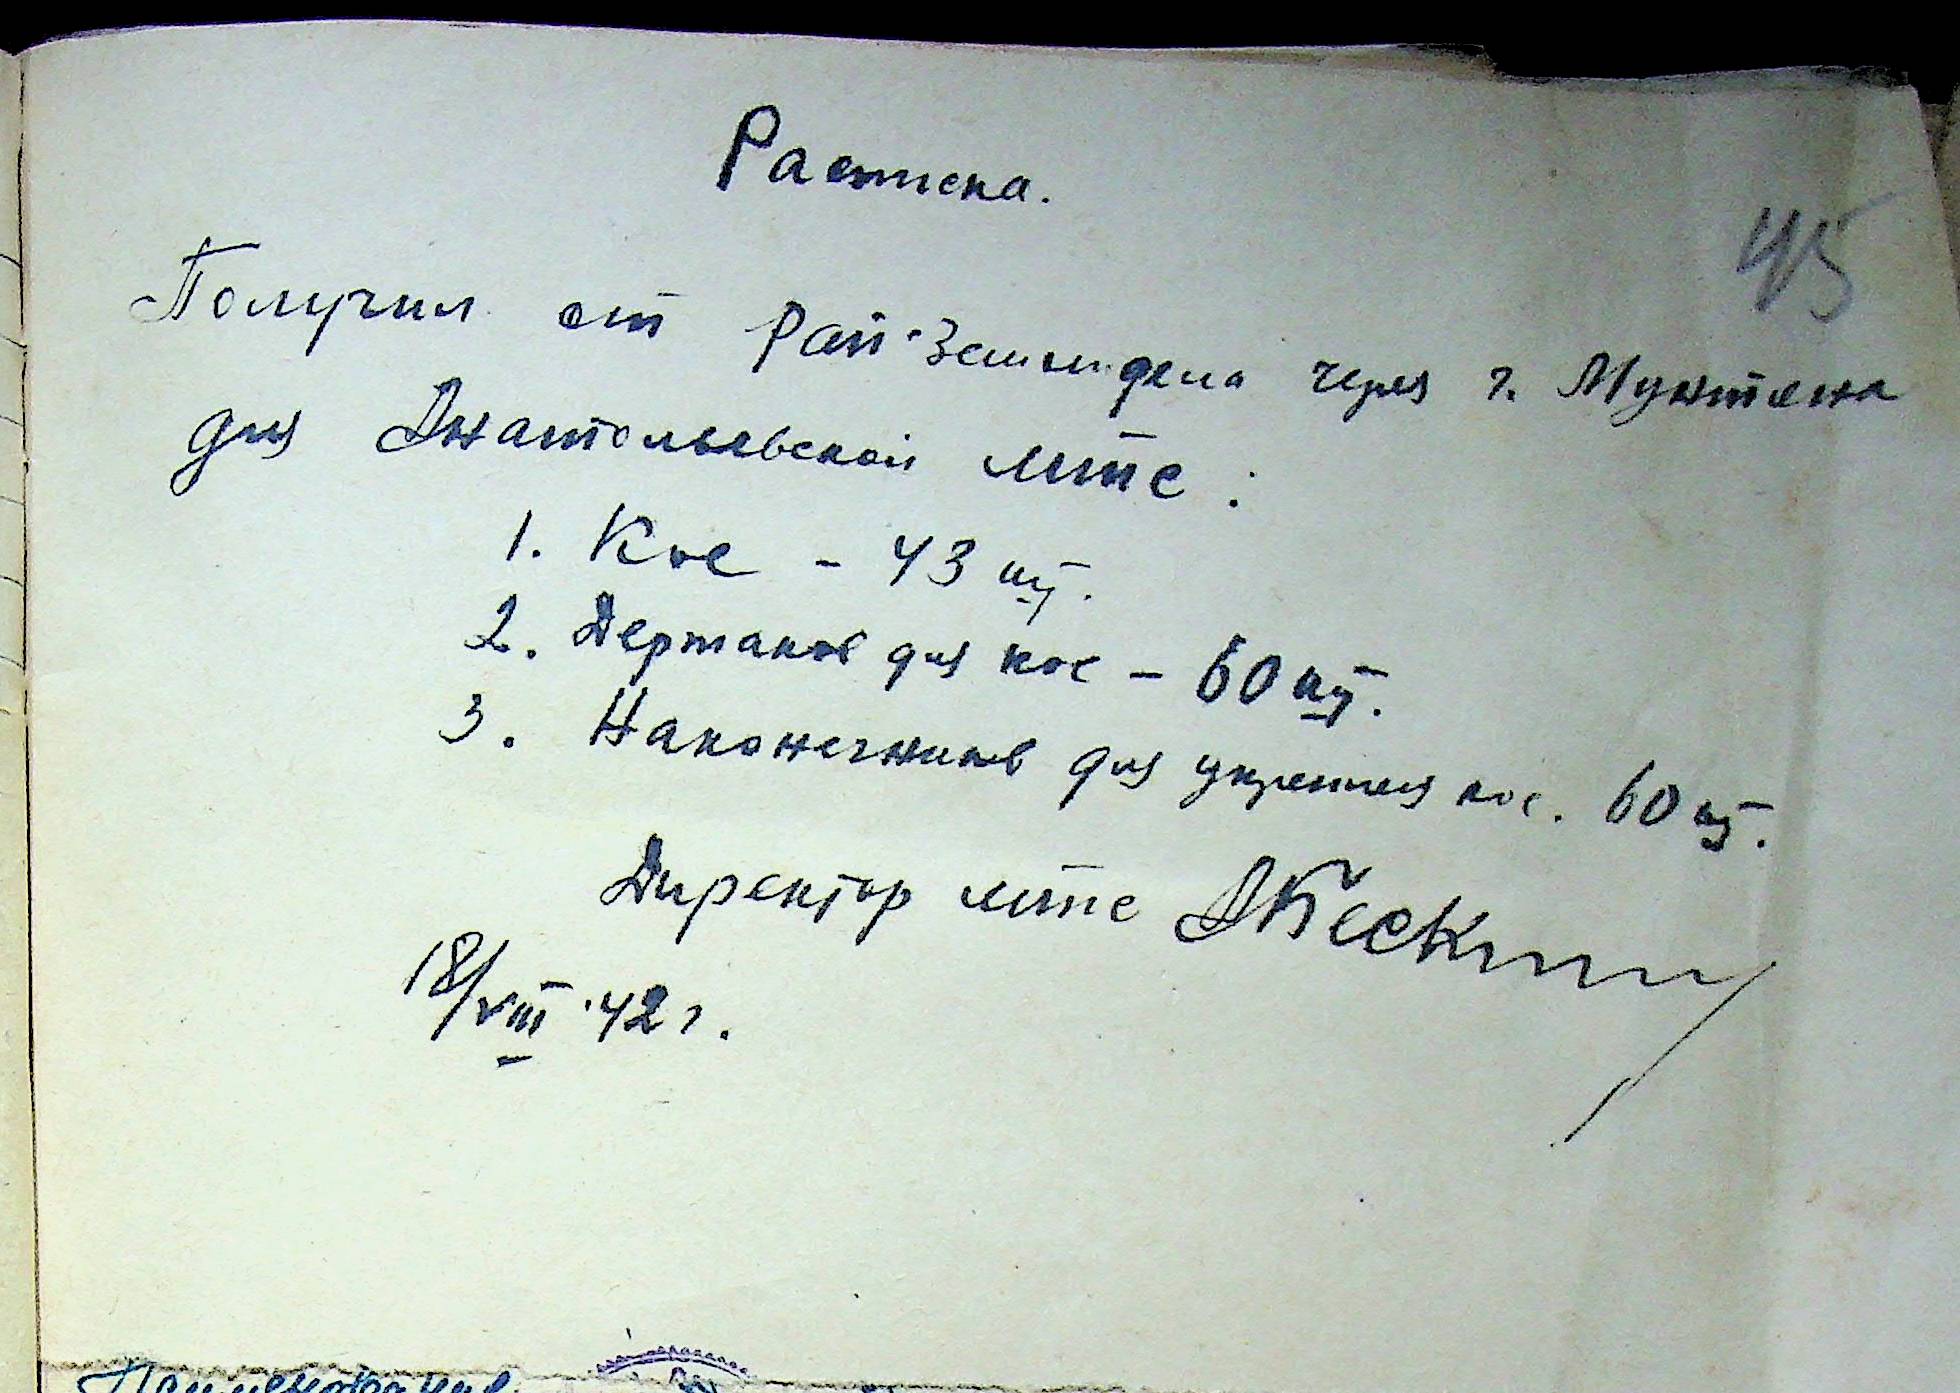 Расписка.
45
Получил от Рай-Земотдела через г. Мунтяна
для Анатольевской мтс:
1. Кос - 43 шт.
2. Держаков для кос - 60 шт.
3. Наконечников для укрепления кос. 60 шт.
Директор мтс
18/VIII 42 г.
Наименование